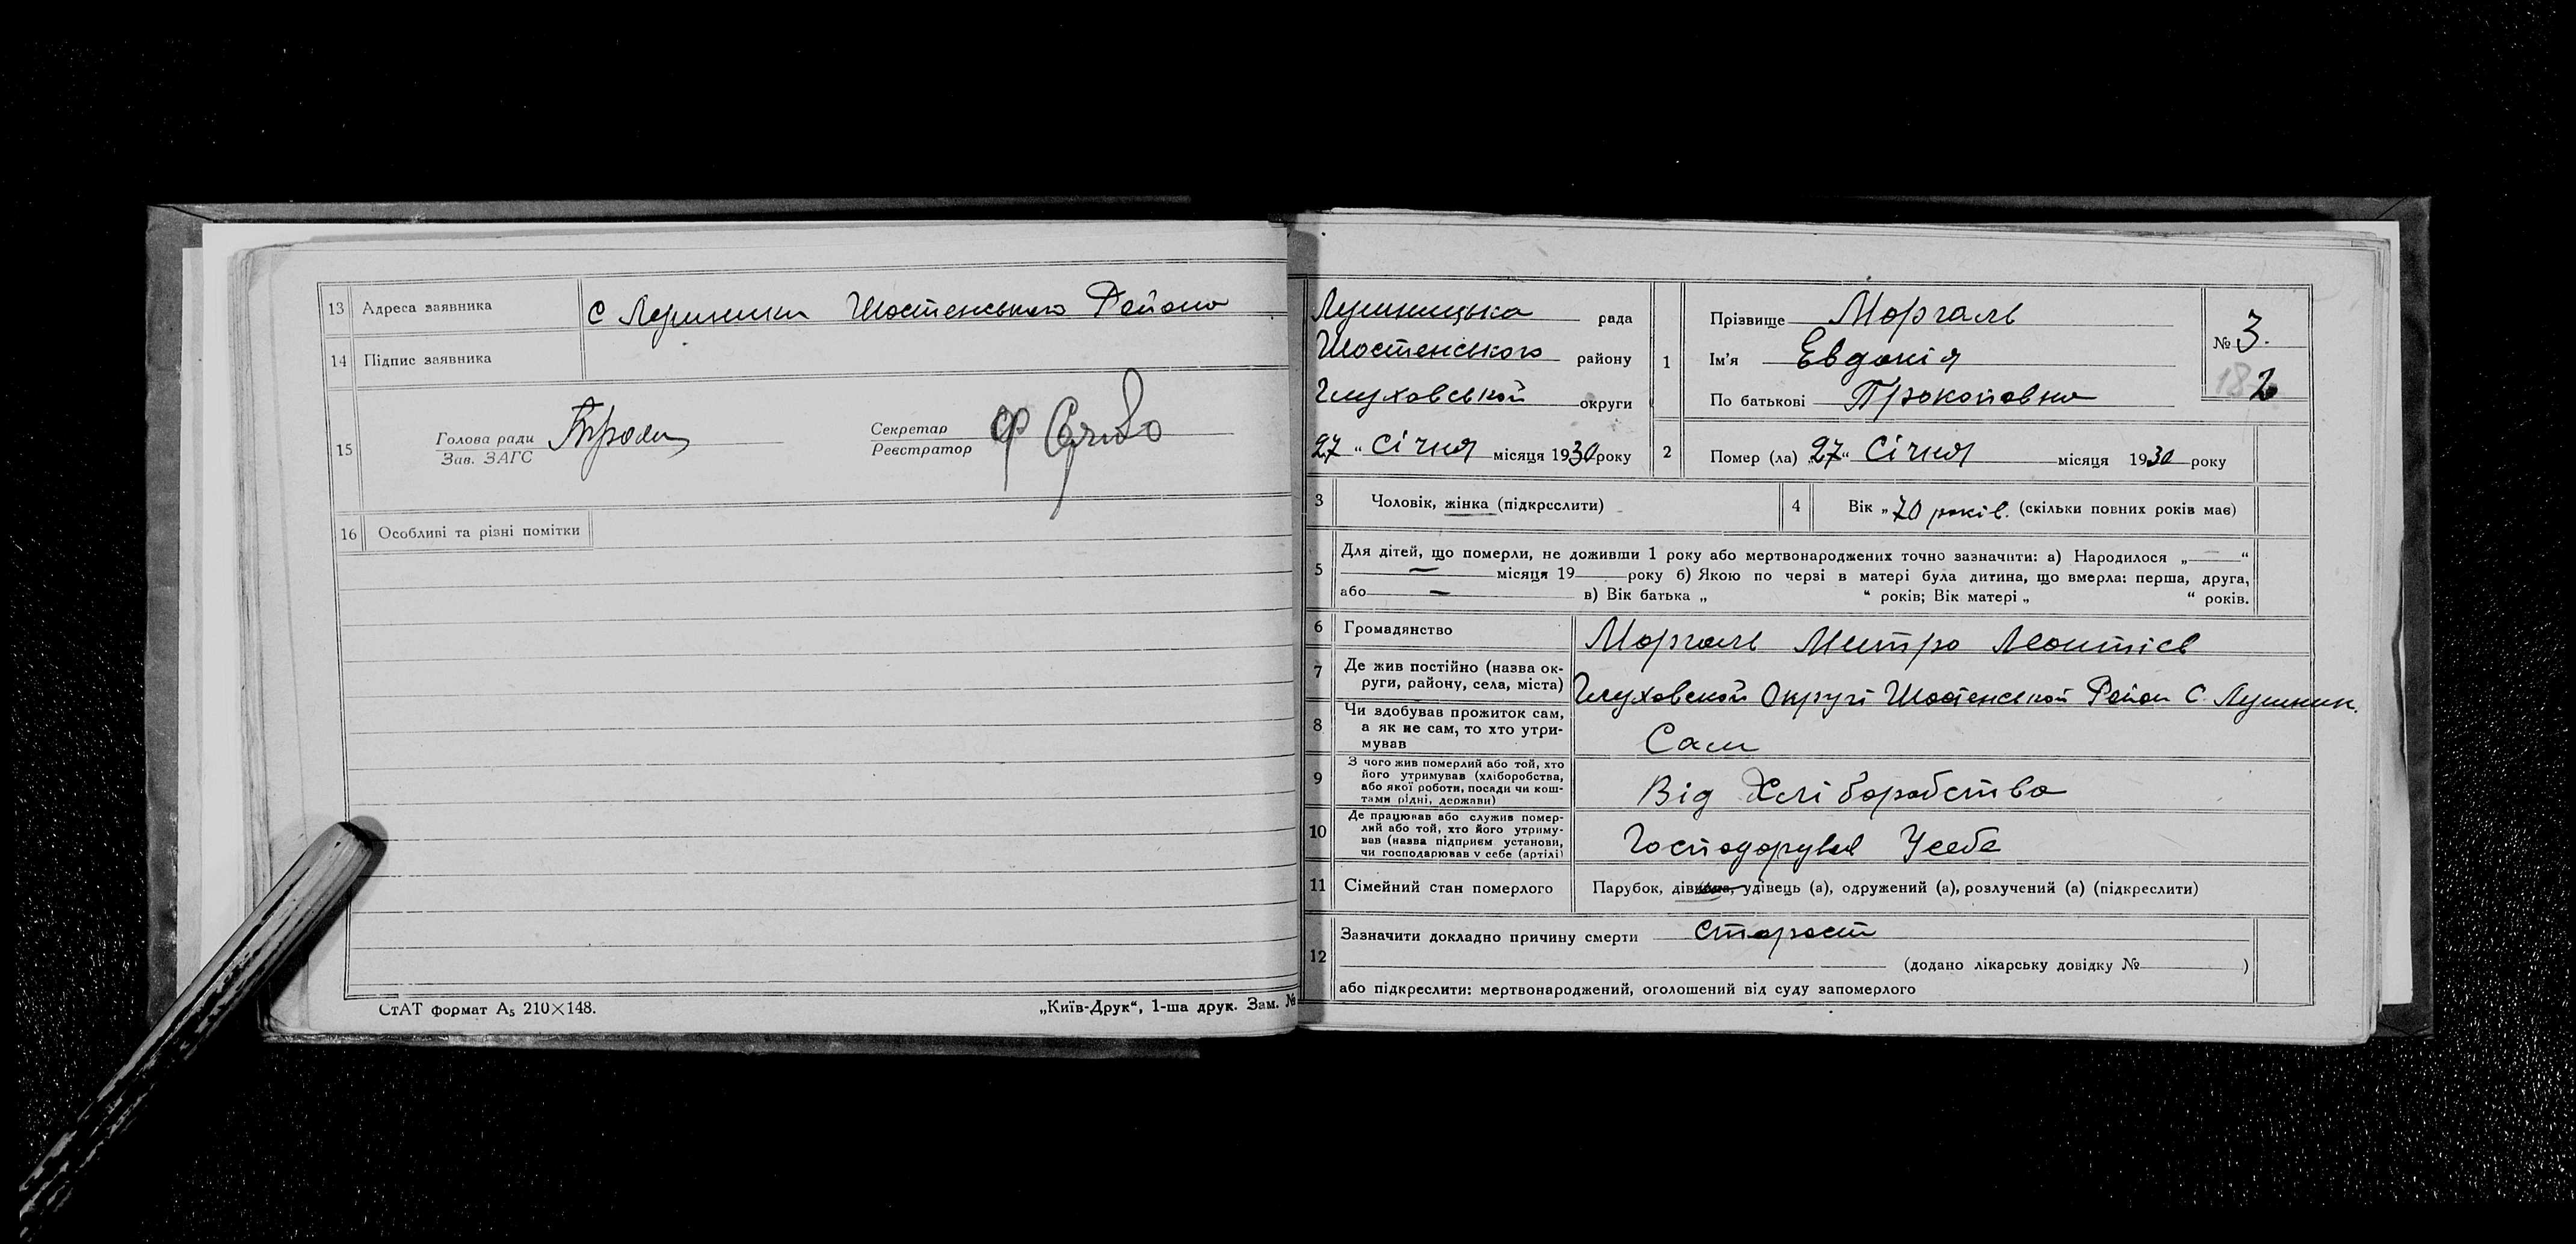 13 Адреса заявника с Лушники Шостенського Району
14 Підпис заявника
15 Голова ради
Зав. ЗАГС
Секретар
Реєстратор
16 Особливі та різні помітки
СтАТ формат А₅ 210×148.
„Київ-Друк“, 1-ша друк. Зам. №
Лушницька рада
Шостенського району
Глуховськой округи
27 “ Січня місяця 1930 року
1 Прізвище Моргаль
Ім’я Евдокія
По батькові Прокоповна
№ 3.
2
2 Помер (ла) „27“ Січня місяця 1930 року
3 Чоловік, жінка (підкреслити)
4 Вік „70 років. (скільки повних років має)
5 Для дітей, що померли, не доживши 1 року або мертвонароджених точно зазначити: а) Народилося „ — “
— місяця 19 року б) Якою по черзі в матері була дитина, що вмерла: перша, друга,
або — в) Вік батька „ “ років; Вік матері „ “ років.
6 Громадянство Моргаль Митро Леонтієв
7 Де жив постійно (назва ок-
руги, району, села, міста) Глуховской Округі Шостенськой Район С. Лушник.
8 Чи здобував прожиток сам,
а як не сам, то хто утри-
мував Сам
9 З чого жив померлий або той, хто
його утримував (хліборобства,
або якої роботи, посади чи кош-
тами рідні, держави) Від Хліборобства
10 Де працював або служив помер-
лий або той, хто його утриму-
вав (назва підприєм. установи,
чи господарював у себе (артілі) Господорував Усебе
11 Сімейний стан померлого Парубок, дівчина, удівець (а), одружений (а), розлучений (а) (підкреслити)
12 Зазначити докладно причину смерти Старост
(додано лікарську довідку № )
або підкреслити: мертвонароджений, оголошений від суду запомерлого